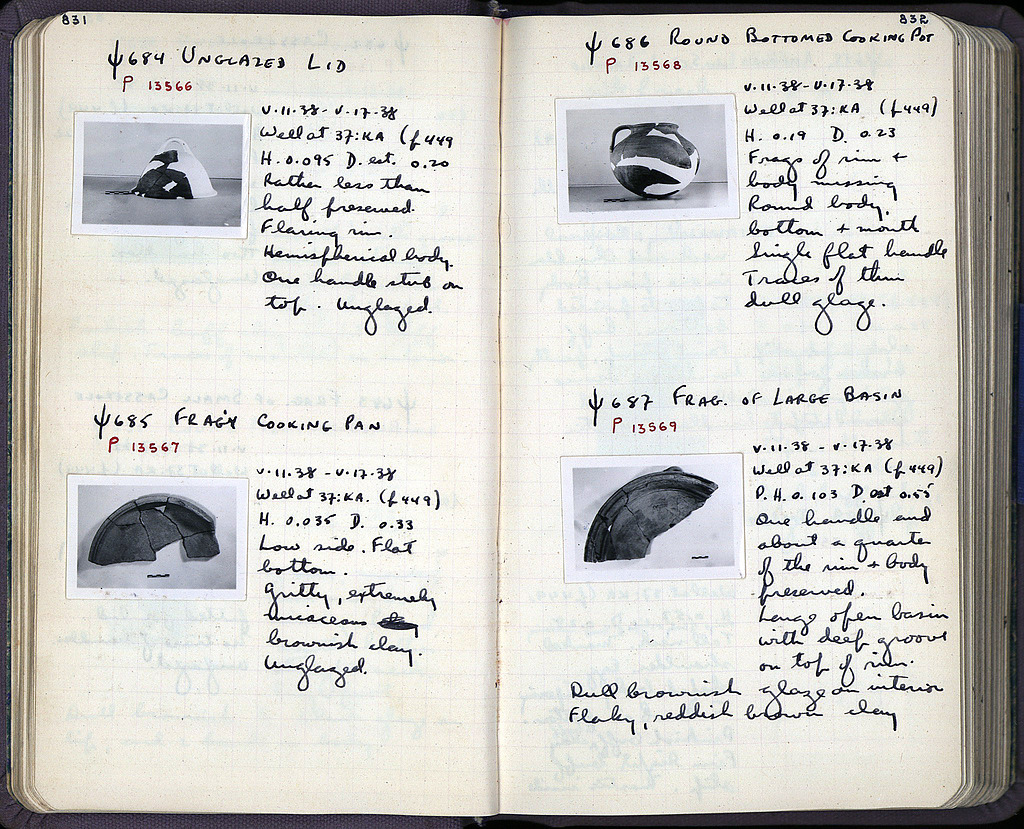 831
ψ684 UNGLAZED LID
P 13566
V.11.38 - V.17.38
Well at 37:KA (f 449
H. 0.095 D. est. 0.20
Rather less than
half preserved.
Flaring rim.
Hemispherical body.
One handle stub on
top. Unglazed.
ψ685 FRAG'Y COOKING PAN
P 13567
V.11.38 - V.17.38
Well at 37:KA. (f 449)
H. 0.035 D. 0.33
Low side. Flat
bottom.
Gritty, extremely
micaceous
brownish clay.
Unglazed.
832
ψ686 ROUND BOTTOMED COOKING POT
P 13568
V.11.38 - V.17.38
Well at 37:KA (f 449)
H. 0.19 D. 0.23
Frags of rim +
body missing
Round body,
bottom + mouth
Single flat handle
Traces of thin
dull glaze.
ψ687 FRAG. OF LARGE BASIN
P 13569
V.11.38 - V.17.38
Well at 37:KA (f 449)
P.H. 0.103 D. est 0.55
One handle and
about a quarter
of the rim + body
preserved.
Large open basin
with deep groove
on top of rim.
Dull brownish glaze on interior
Flaky, reddish brown clay